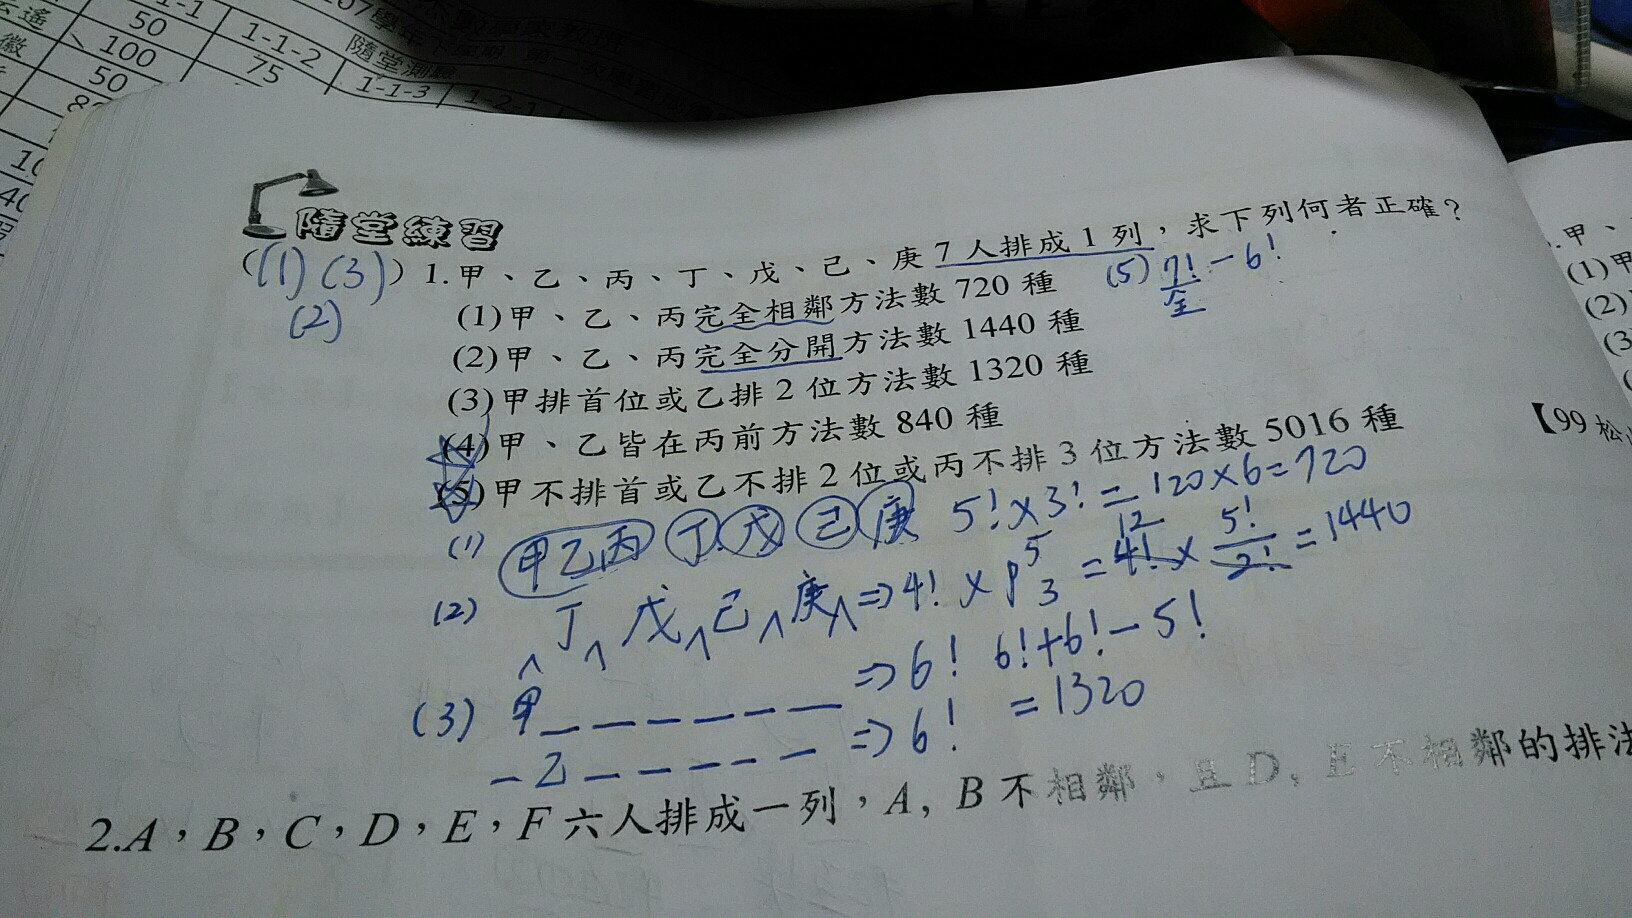 1-1
50
1-1-2
100
75
50
隨堂測驗
1-1-3
1-2-1
隨堂練習
((1) (3)) 1.甲、乙、丙、丁、戊、己、庚7人排成1列,求下列何者正確?
(2)
(1)甲、乙、丙完全相鄰方法數720種
(5) 7!/全 - 6!
(2)甲、乙、丙完全分開方法數1440種
(3)甲排首位或乙排2位方法數1320種
(4)甲、乙皆在丙前方法數840種
(5)甲不排首或乙不排2位或丙不排3位方法數5016種
(1) 甲乙丙 丁 戊 己 庚 5!×3! = 120×6=720
(2) ^ 丁 ^ 戊 ^ 己 ^ 庚 ^ ⇒ 4! × P⁵₃ = 4! × 5!/2! = 1440
12
(3) 甲 _ _ _ _ _ _ ⇒ 6! 6!+6!-5!
_ 乙 _ _ _ _ _ ⇒ 6! = 1320
2.A,B,C,D,E,F六人排成一列,A, B不相鄰,且D, E不相鄰的排法
.甲、
(1)甲
(2)
(3)
【99松